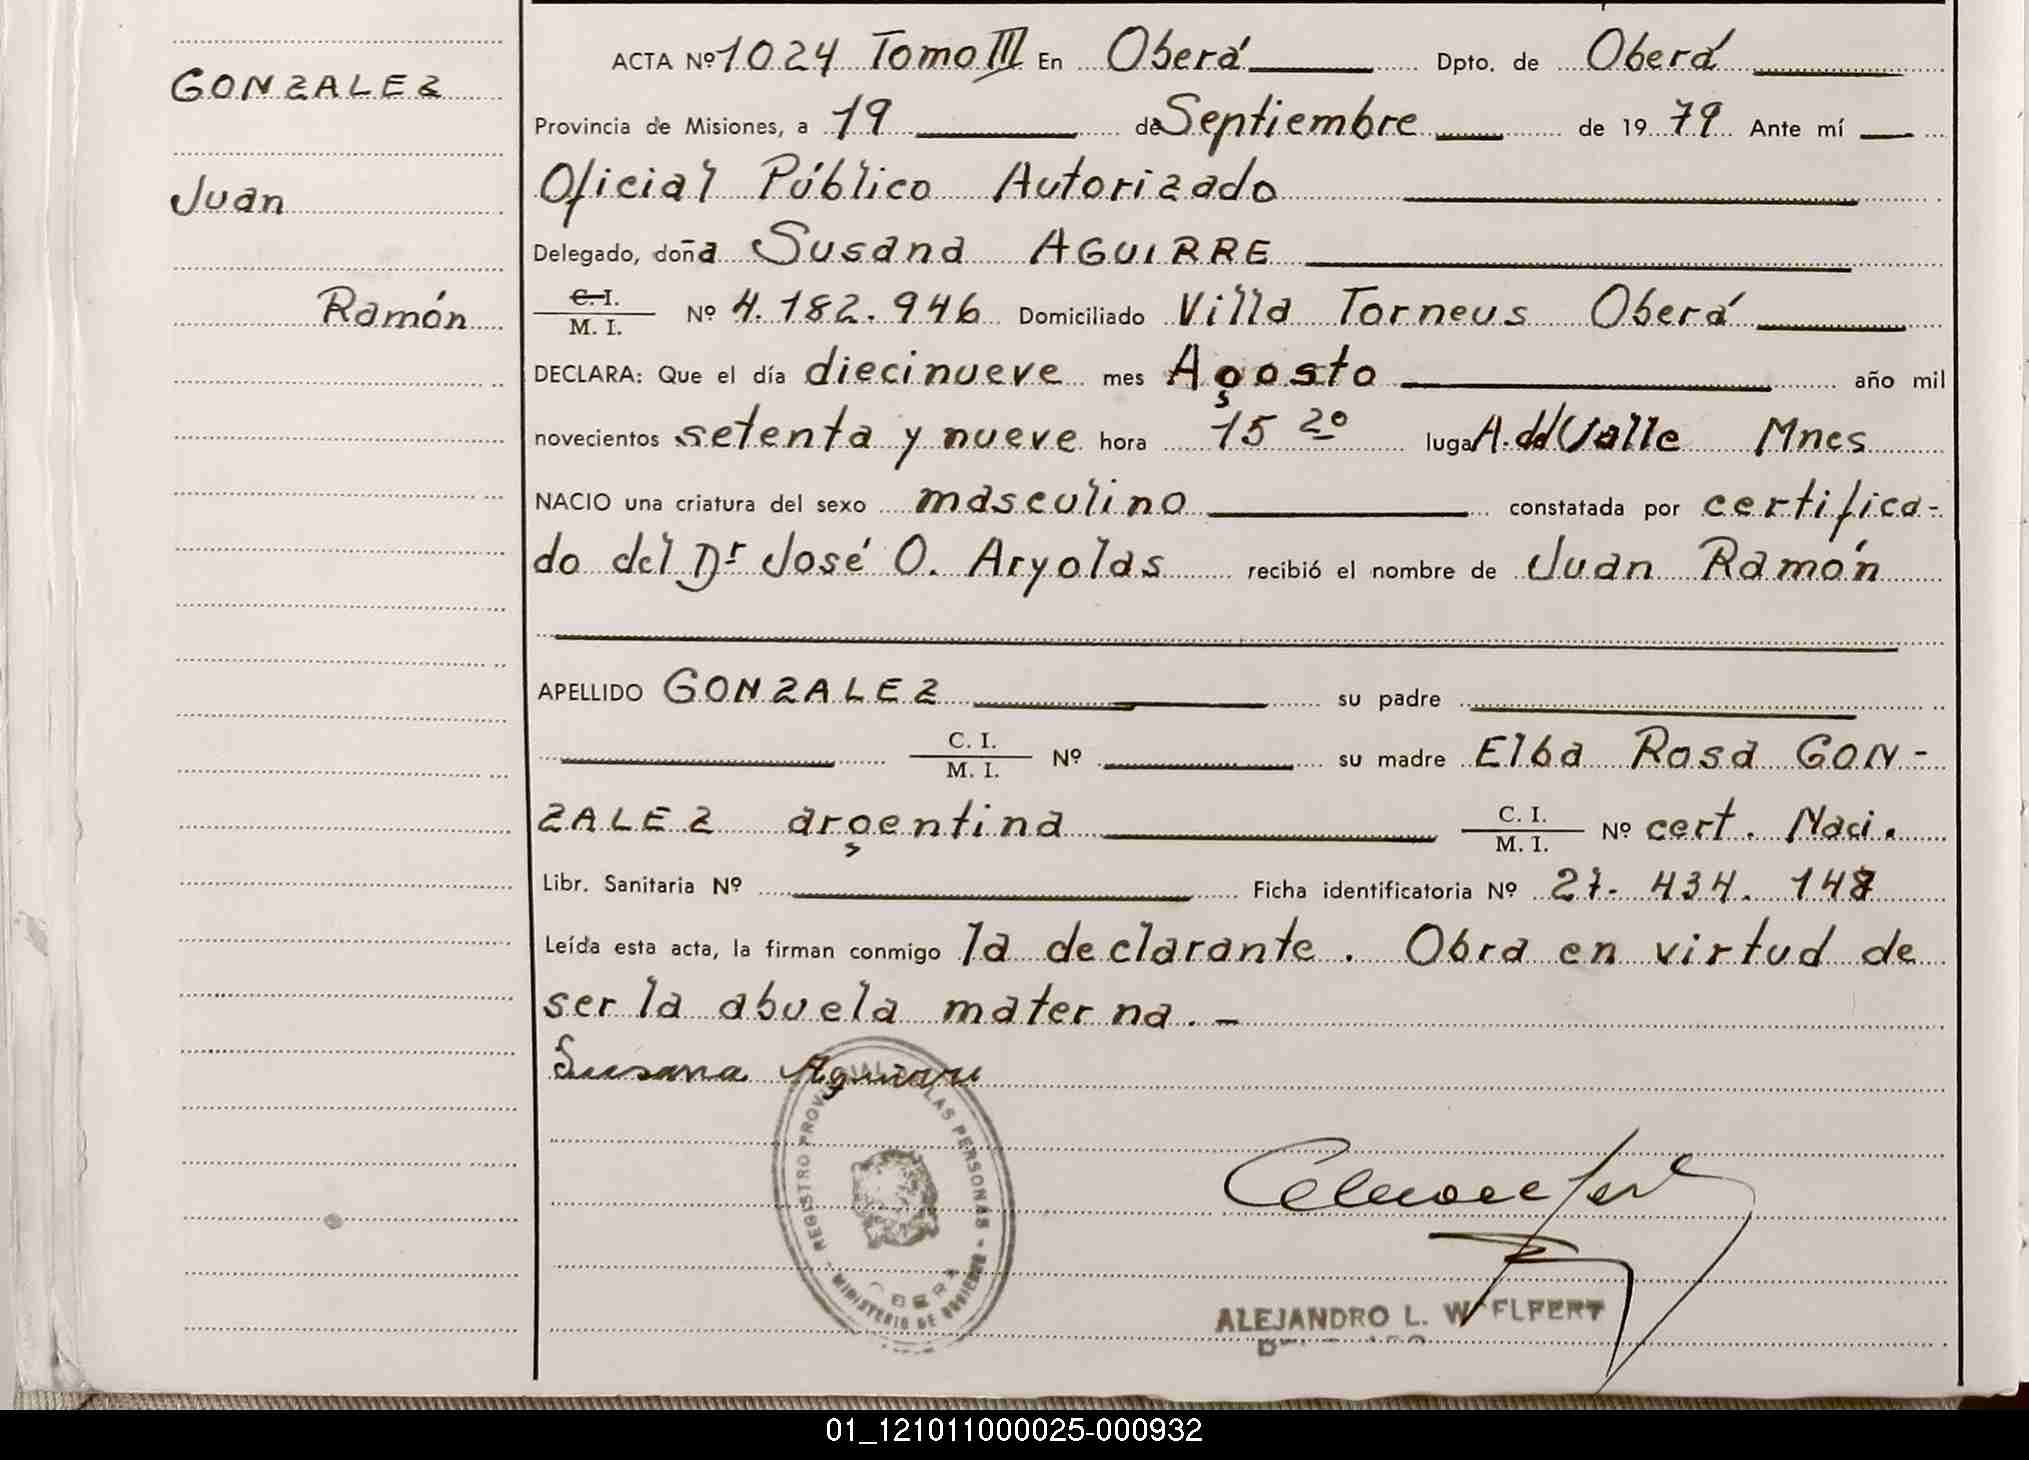 GONZALEZ
Juan
Ramón
ACTA Nº 1024 Tomo III En Oberá Dpto. de Oberá
Provincia de Misiones, a 19 de Septiembre de 1979 Ante mí
Oficial Público Autorizado
Delegado, doña Susana AGUIRRE
C. I.
M. I. Nº 4.182.946 Domiciliado Villa Torneus Oberá
DECLARA: Que el día diecinueve mes Agosto año mil
novecientos setenta y nueve hora 15 20 lugar A. del Valle Mnes
NACIO una criatura del sexo masculino constatada por certifica-
do del Dr José O. Aryolas recibió el nombre de Juan Ramón
APELLIDO GONZALEZ su padre
C. I.
M. I. Nº su madre Elba Rosa GON-
ZALEZ argentina C. I.
M. I. Nº cert. Naci.
Libr. Sanitaria Nº Ficha identificatoria Nº 27.434.148
Leída esta acta, la firman conmigo la declarante. Obra en virtud de
ser la abuela materna.-
Susana Aguirre
REGISTRO PROVINCIAL DE LAS PERSONAS - MINISTERIO DE GOBIERNO
OBERA
ALEJANDRO L. WELFERT
01_121011000025-000932